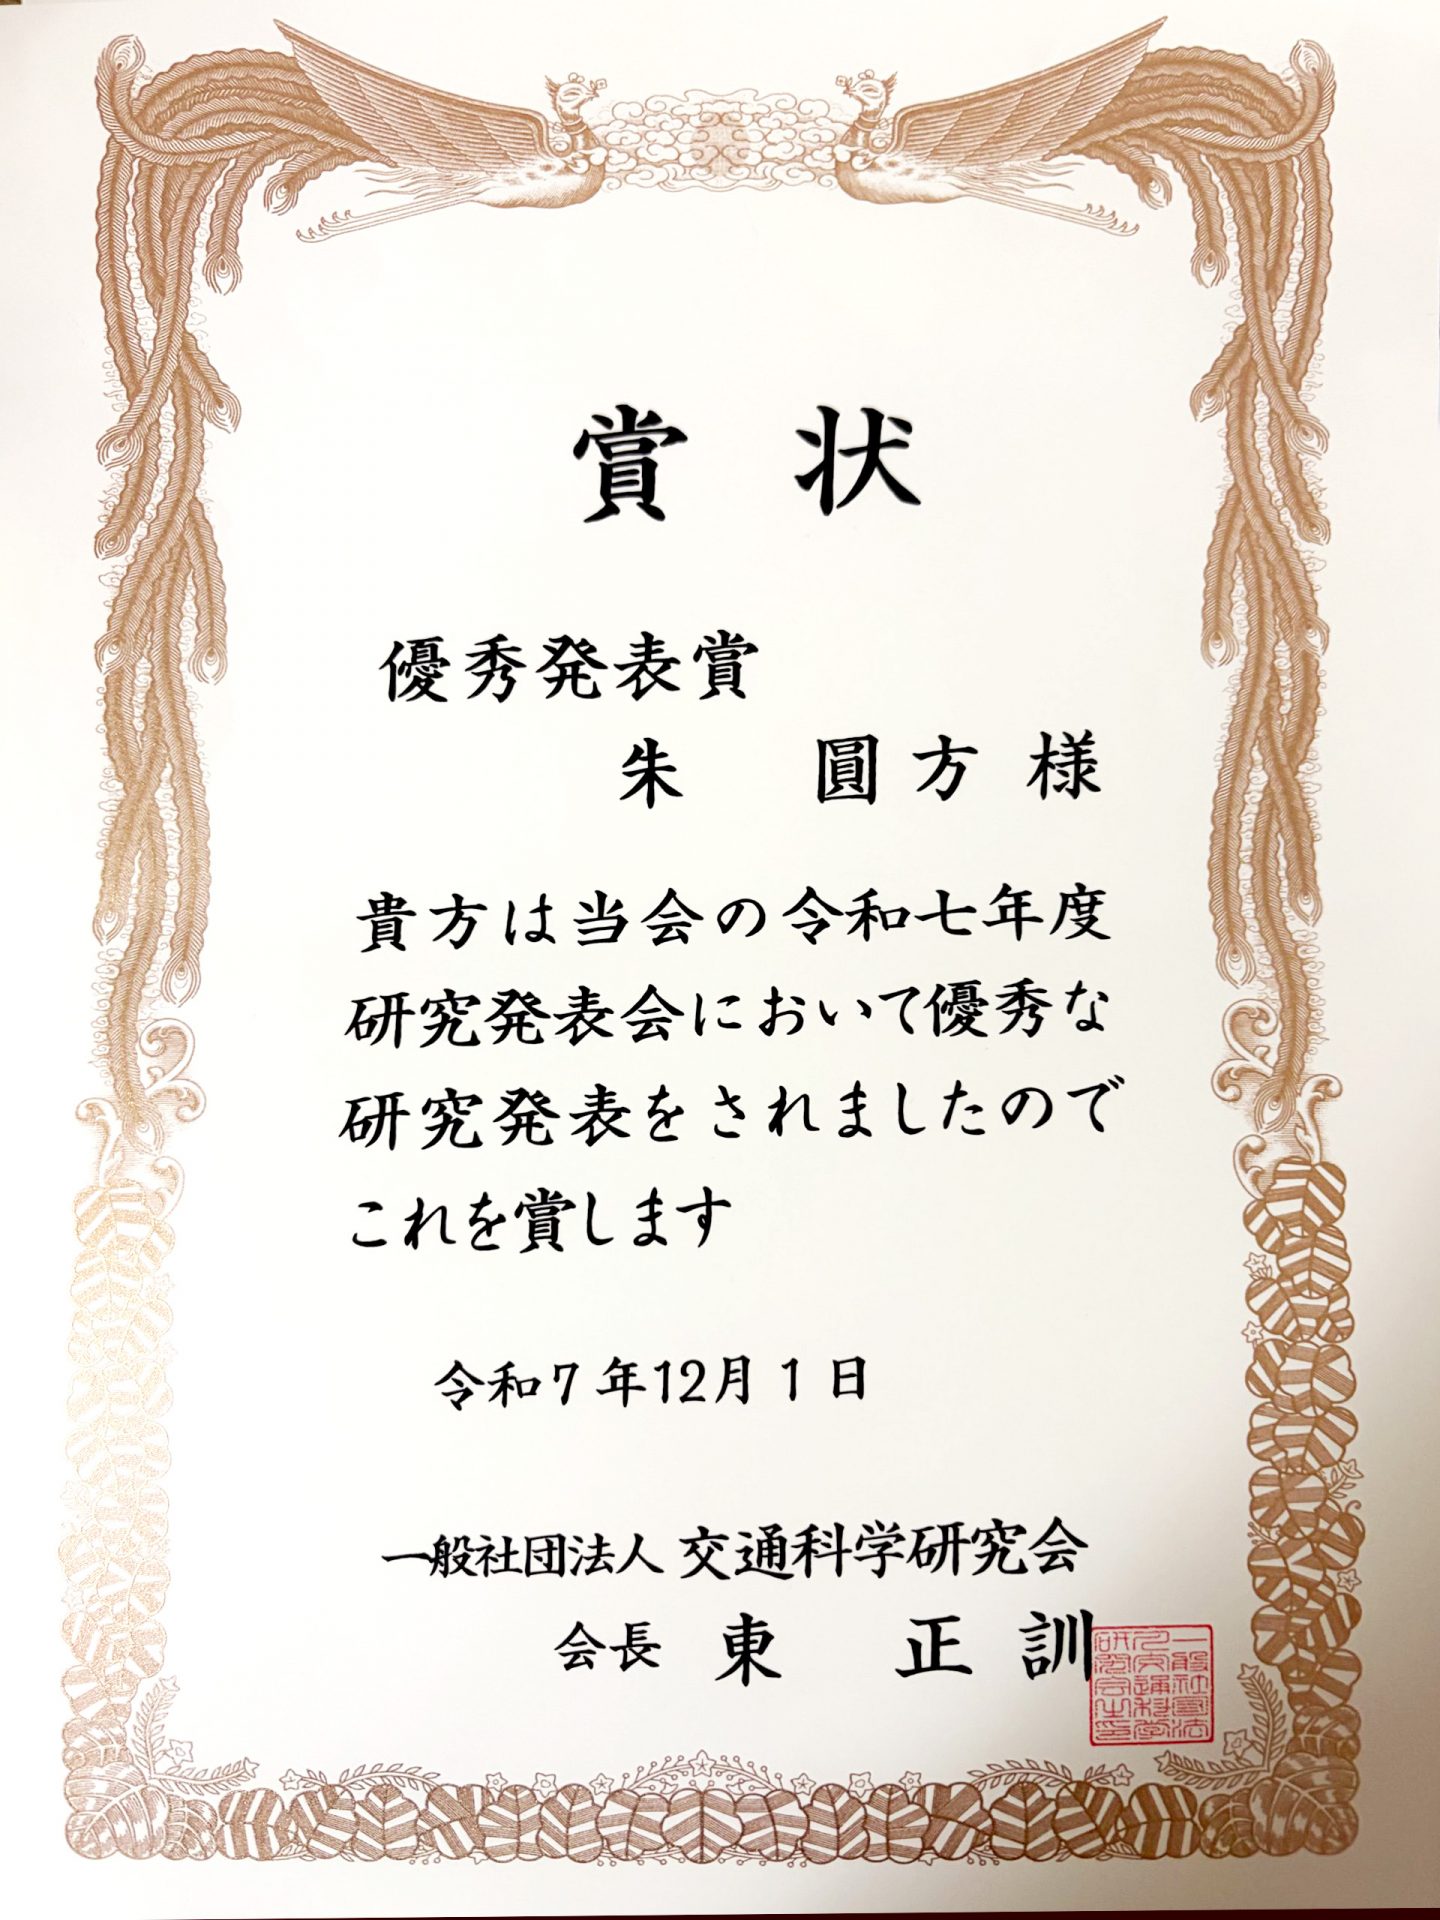 賞状
優秀発表賞
朱 圓方 様
貴方は当会の令和七年度
研究発表会において優秀な
研究発表をされましたので
これを賞します
令和7年12月1日
一般社団法人 交通科学研究会
会長 東 正訓
一般社団法
人交通科学
研究会之印